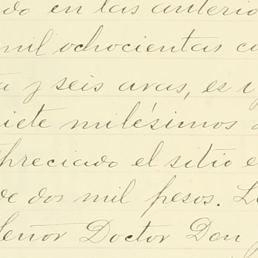 do en las anterio
mil ochocientas c
a y seis avas, es i
iete milésimos
preciado el sitio e
de dos mil pesos. L
Señor Doctor Don